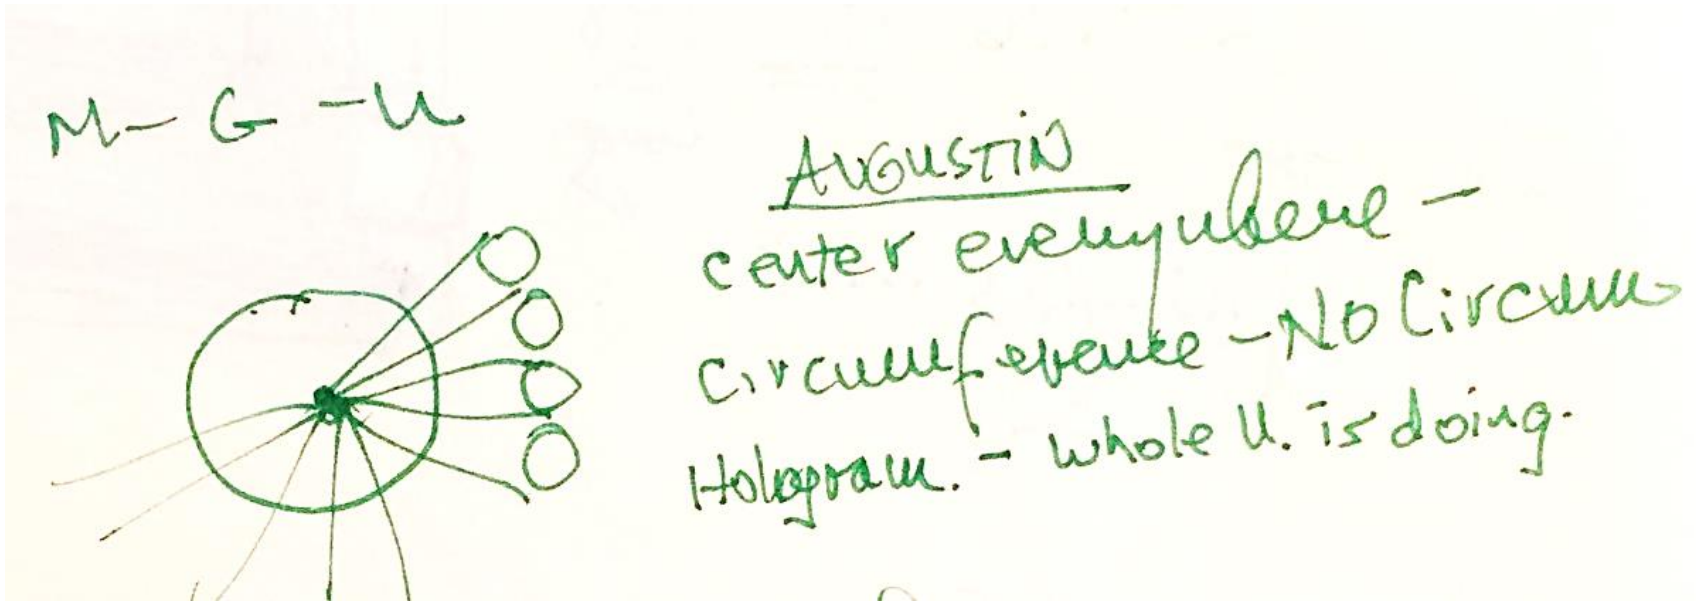 M - G - U
AUGUSTIN
center everywhere -
Circumference - No Circum
Hologram. - whole U. is doing.